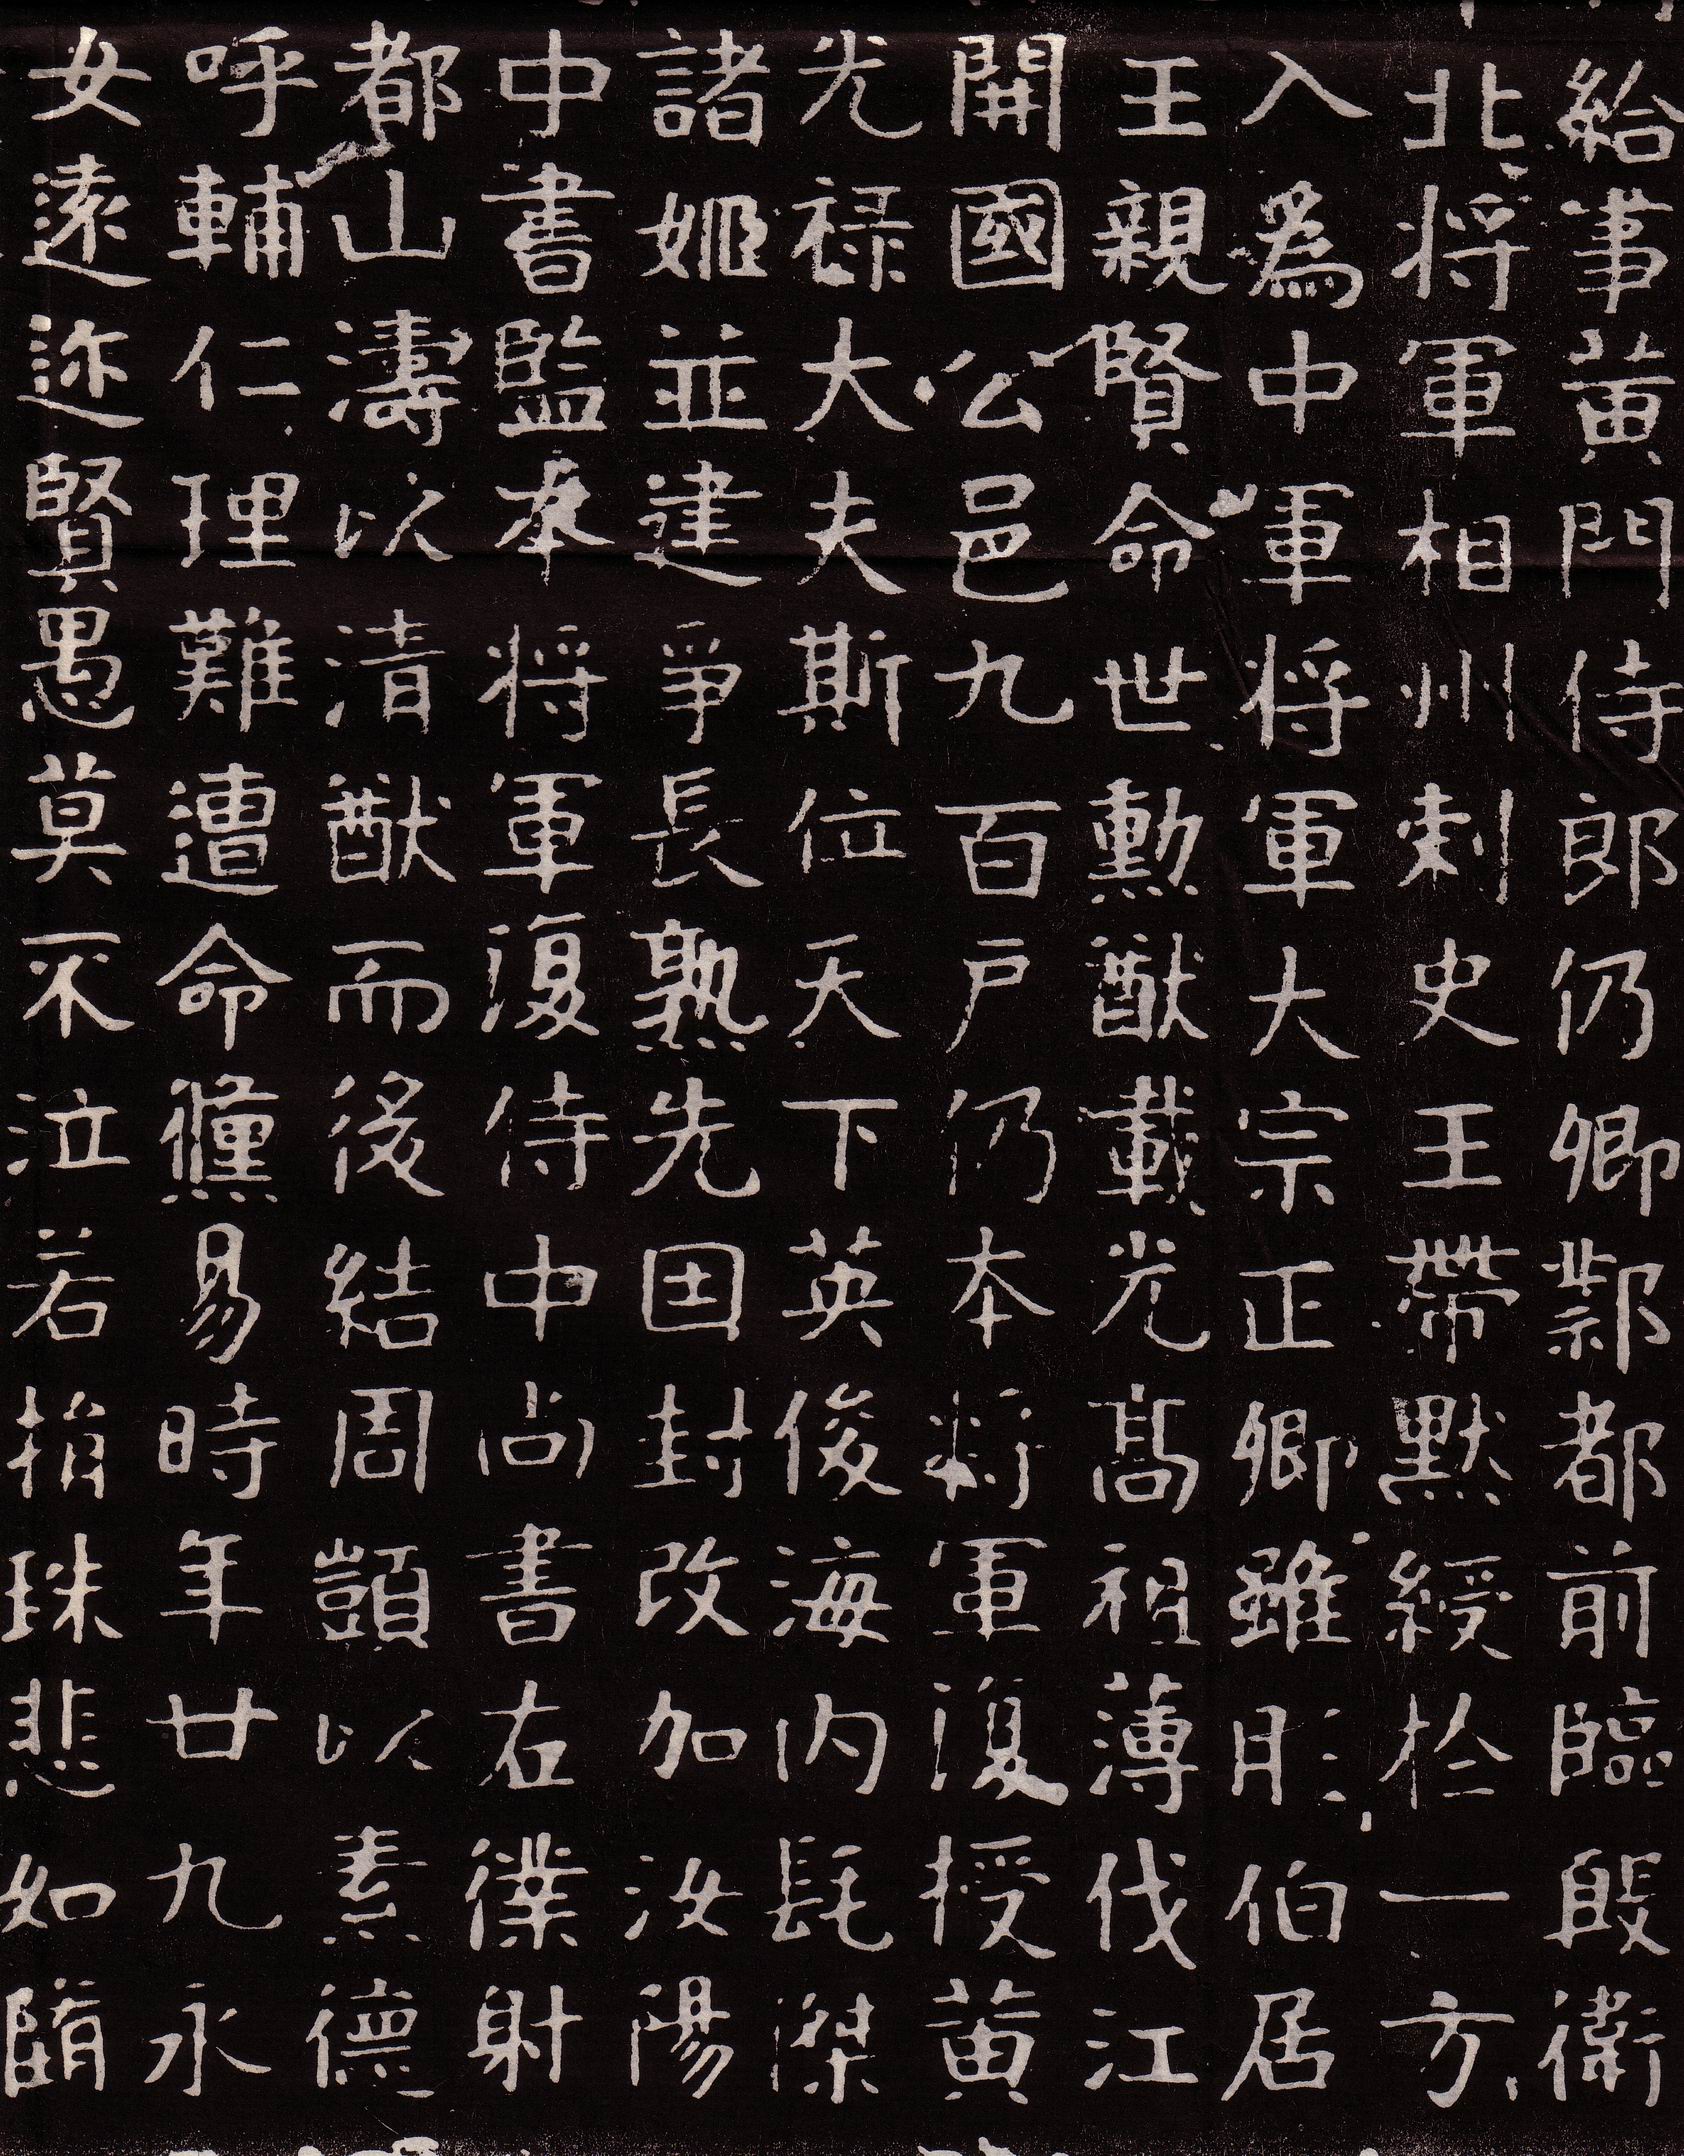 給事黃門侍郎仍卿鄴都前臨殷衛
北将軍相州刺史王帶默綬扵一方
入為中軍将軍大宗正卿雖彤伯居
王親賢命世勲猷載光髙祖薄伐江
開國公邑九百戶仍本将軍復授黃
光禄大夫斯位天下英俊海内髦傑
諸姬並建爭長熟先田封改加汝陽
中書監本将軍復侍中尚書右僕射
都山濤以清猷而後結周顗以素德
呼輔仁理難遭命儵易時年廿九永
女遠迩賢愚莫不泣若捐珠悲如隋